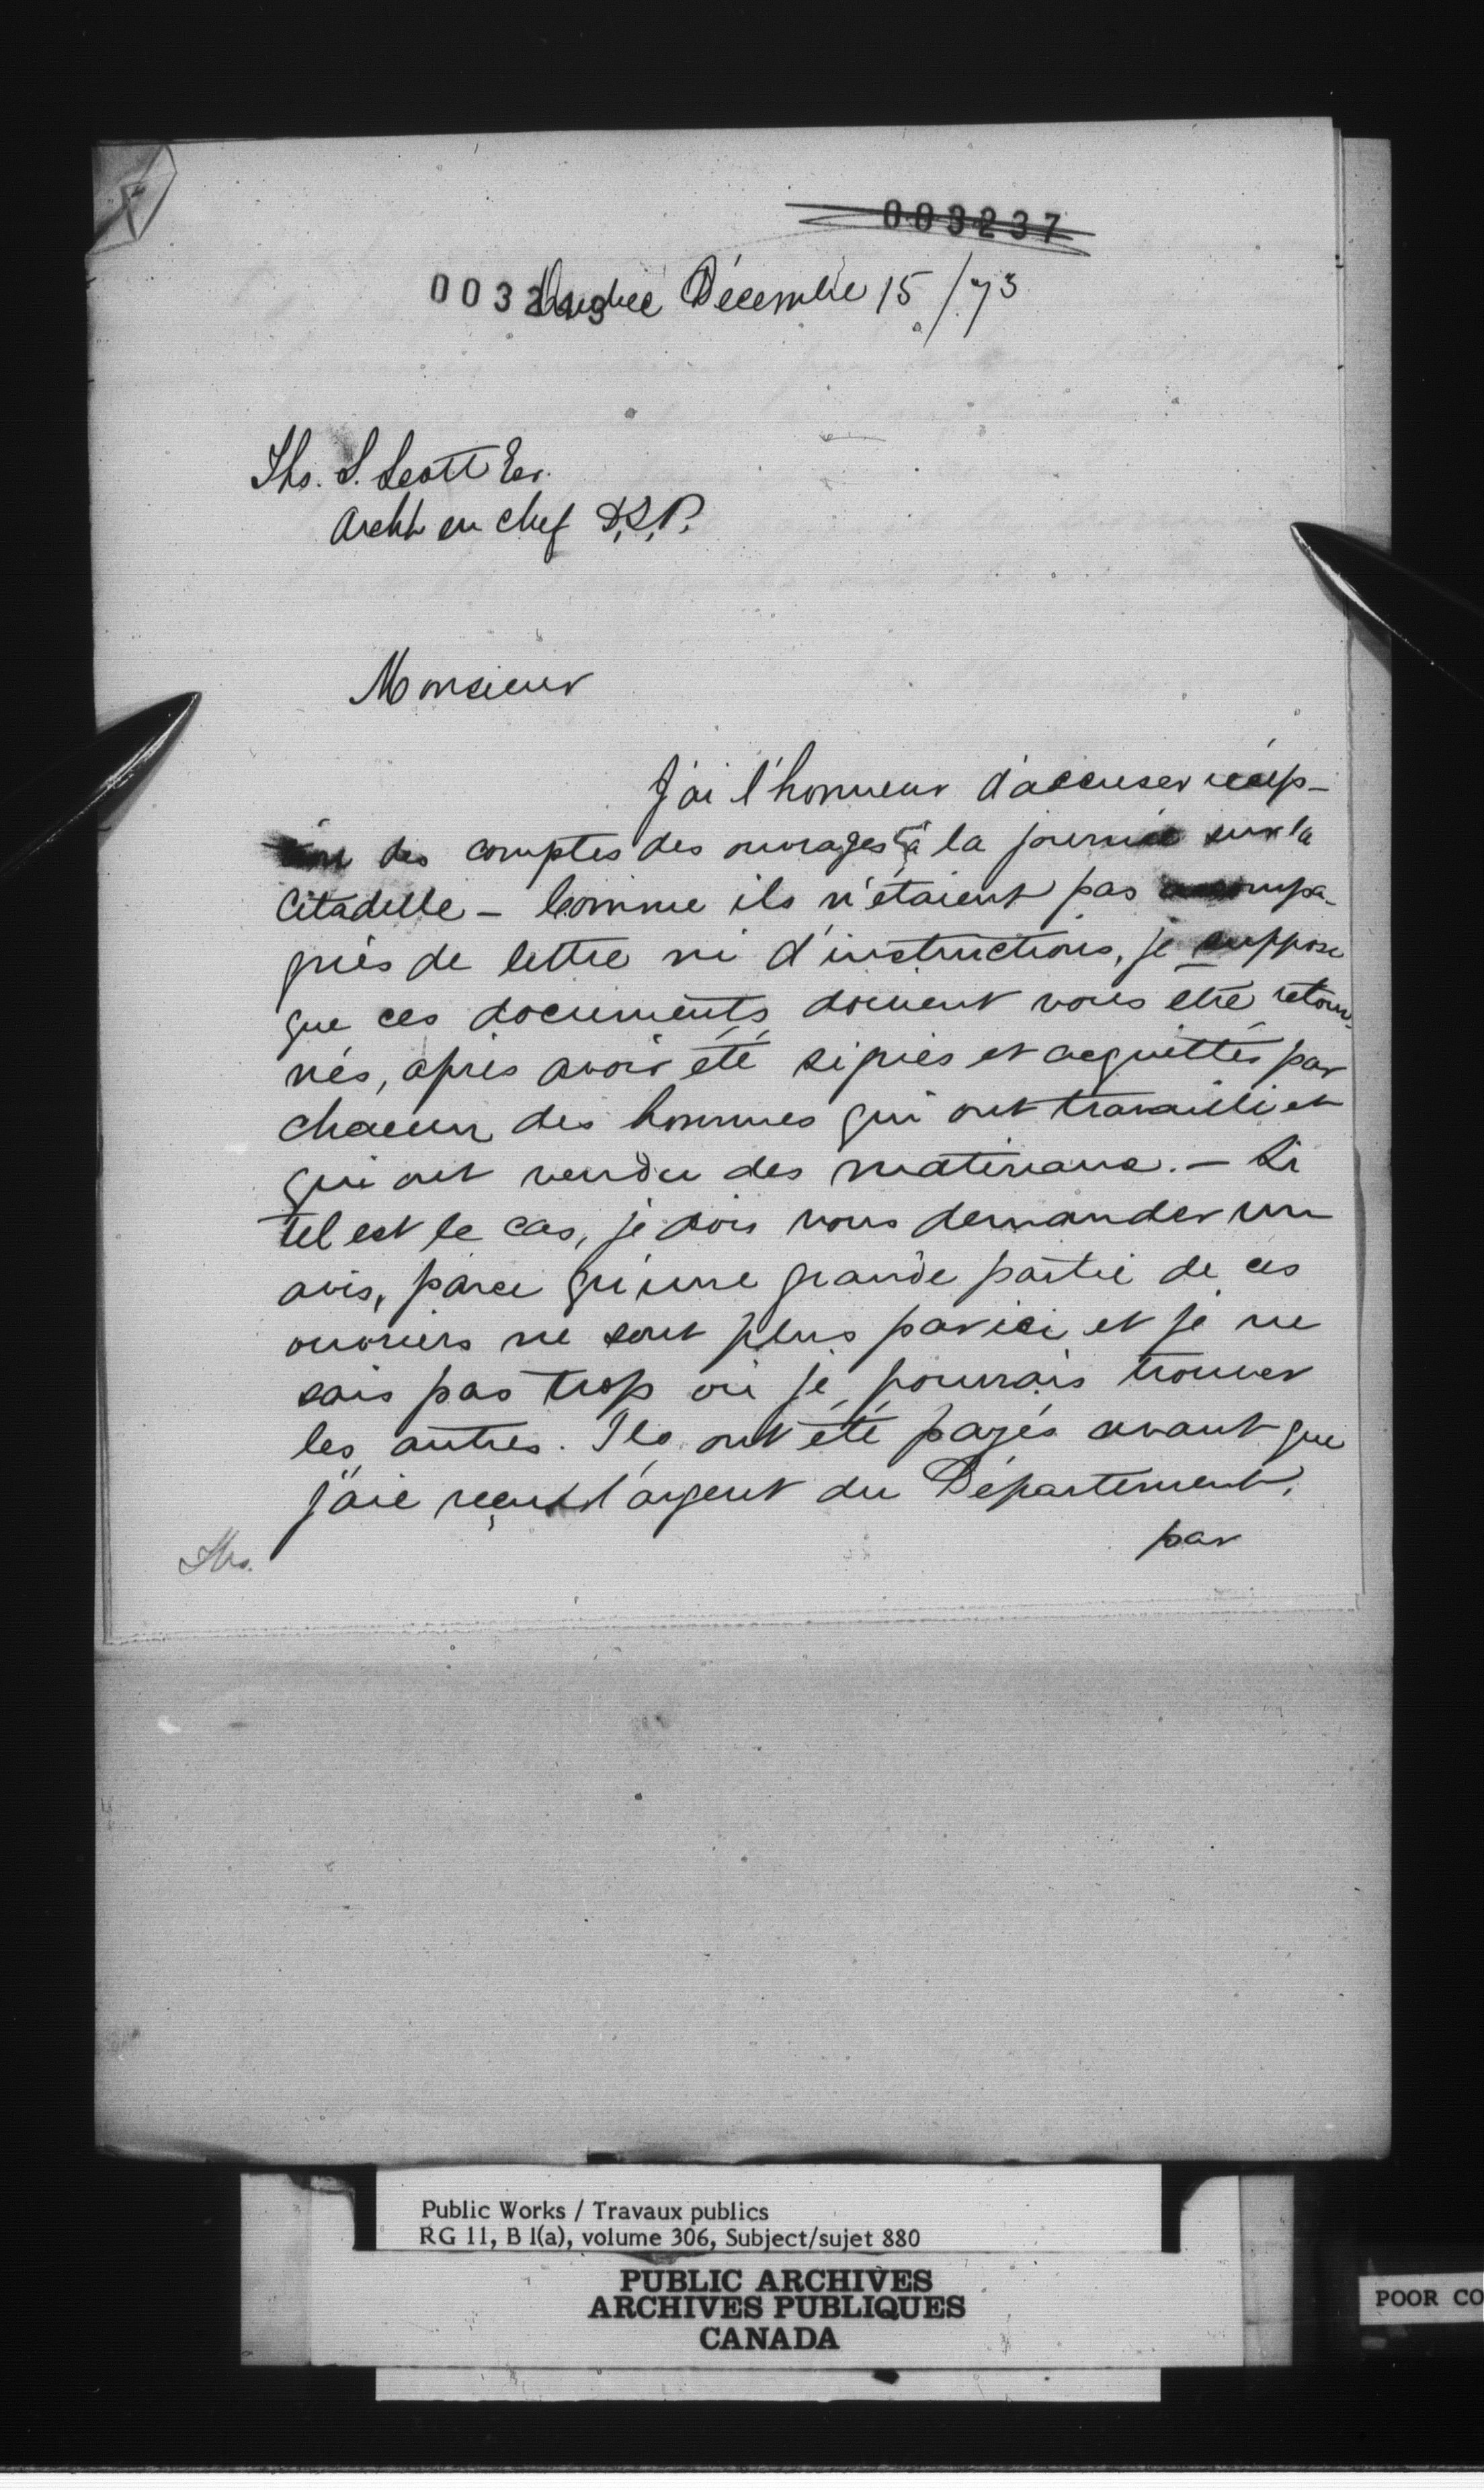 003237
Québec Décembre 15/73
Ths. S. Scott Ecr.
Archt en chef D.T.P.
Monsieur
J'ai l'honneur d'accuser récep-
tion des comptes des ouvrages à la journée sur la
Citadelle - Comme ils n'étaient pas accompa-
gnés de lettre ni d'instructions, je suppose
que ces documents doivent vous être retour-
nés, après avoir été signés et acquittés par
chacun des hommes qui ont travaillé et
qui ont vendu des matériaux. - Si
tel est le cas, je dois vous demander un
avis, parce qu'une grande partie de ces
ouvriers ne sont plus par ici et je ne
sais pas trop où je pourrais trouver
les autres. Ils ont été payés avant que
j'aie reçu l'argent du Département,
par
Ths.
Public Works / Travaux publics
RG 11, B 1(a), volume 306, Subject/sujet 880
PUBLIC ARCHIVES
ARCHIVES PUBLIQUES
CANADA
POOR CO